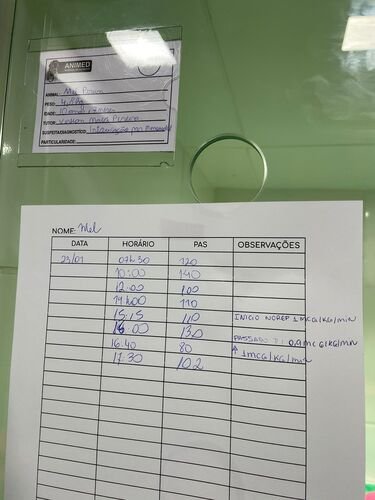 ANIMED
ANIMAL: Mel
PESO: 4,8kg
IDADE: 10
TUTOR:
SUSPEITA/DIAGNÓSTICO: Intoxicação
PARTICULARIDADE:
NOME: Mel
DATA HORÁRIO PAS OBSERVAÇÕES
23/01 07h30 120
10:00 140
12:00 100
14h00 110
15:15 110 INICIO NOREP 1MCG/KG/MIN
16:00 130 PASSADO P/ 0,9MCG/KG/MN
16:40 80 ↑ 1MCG/KG/MIN
17:30 102